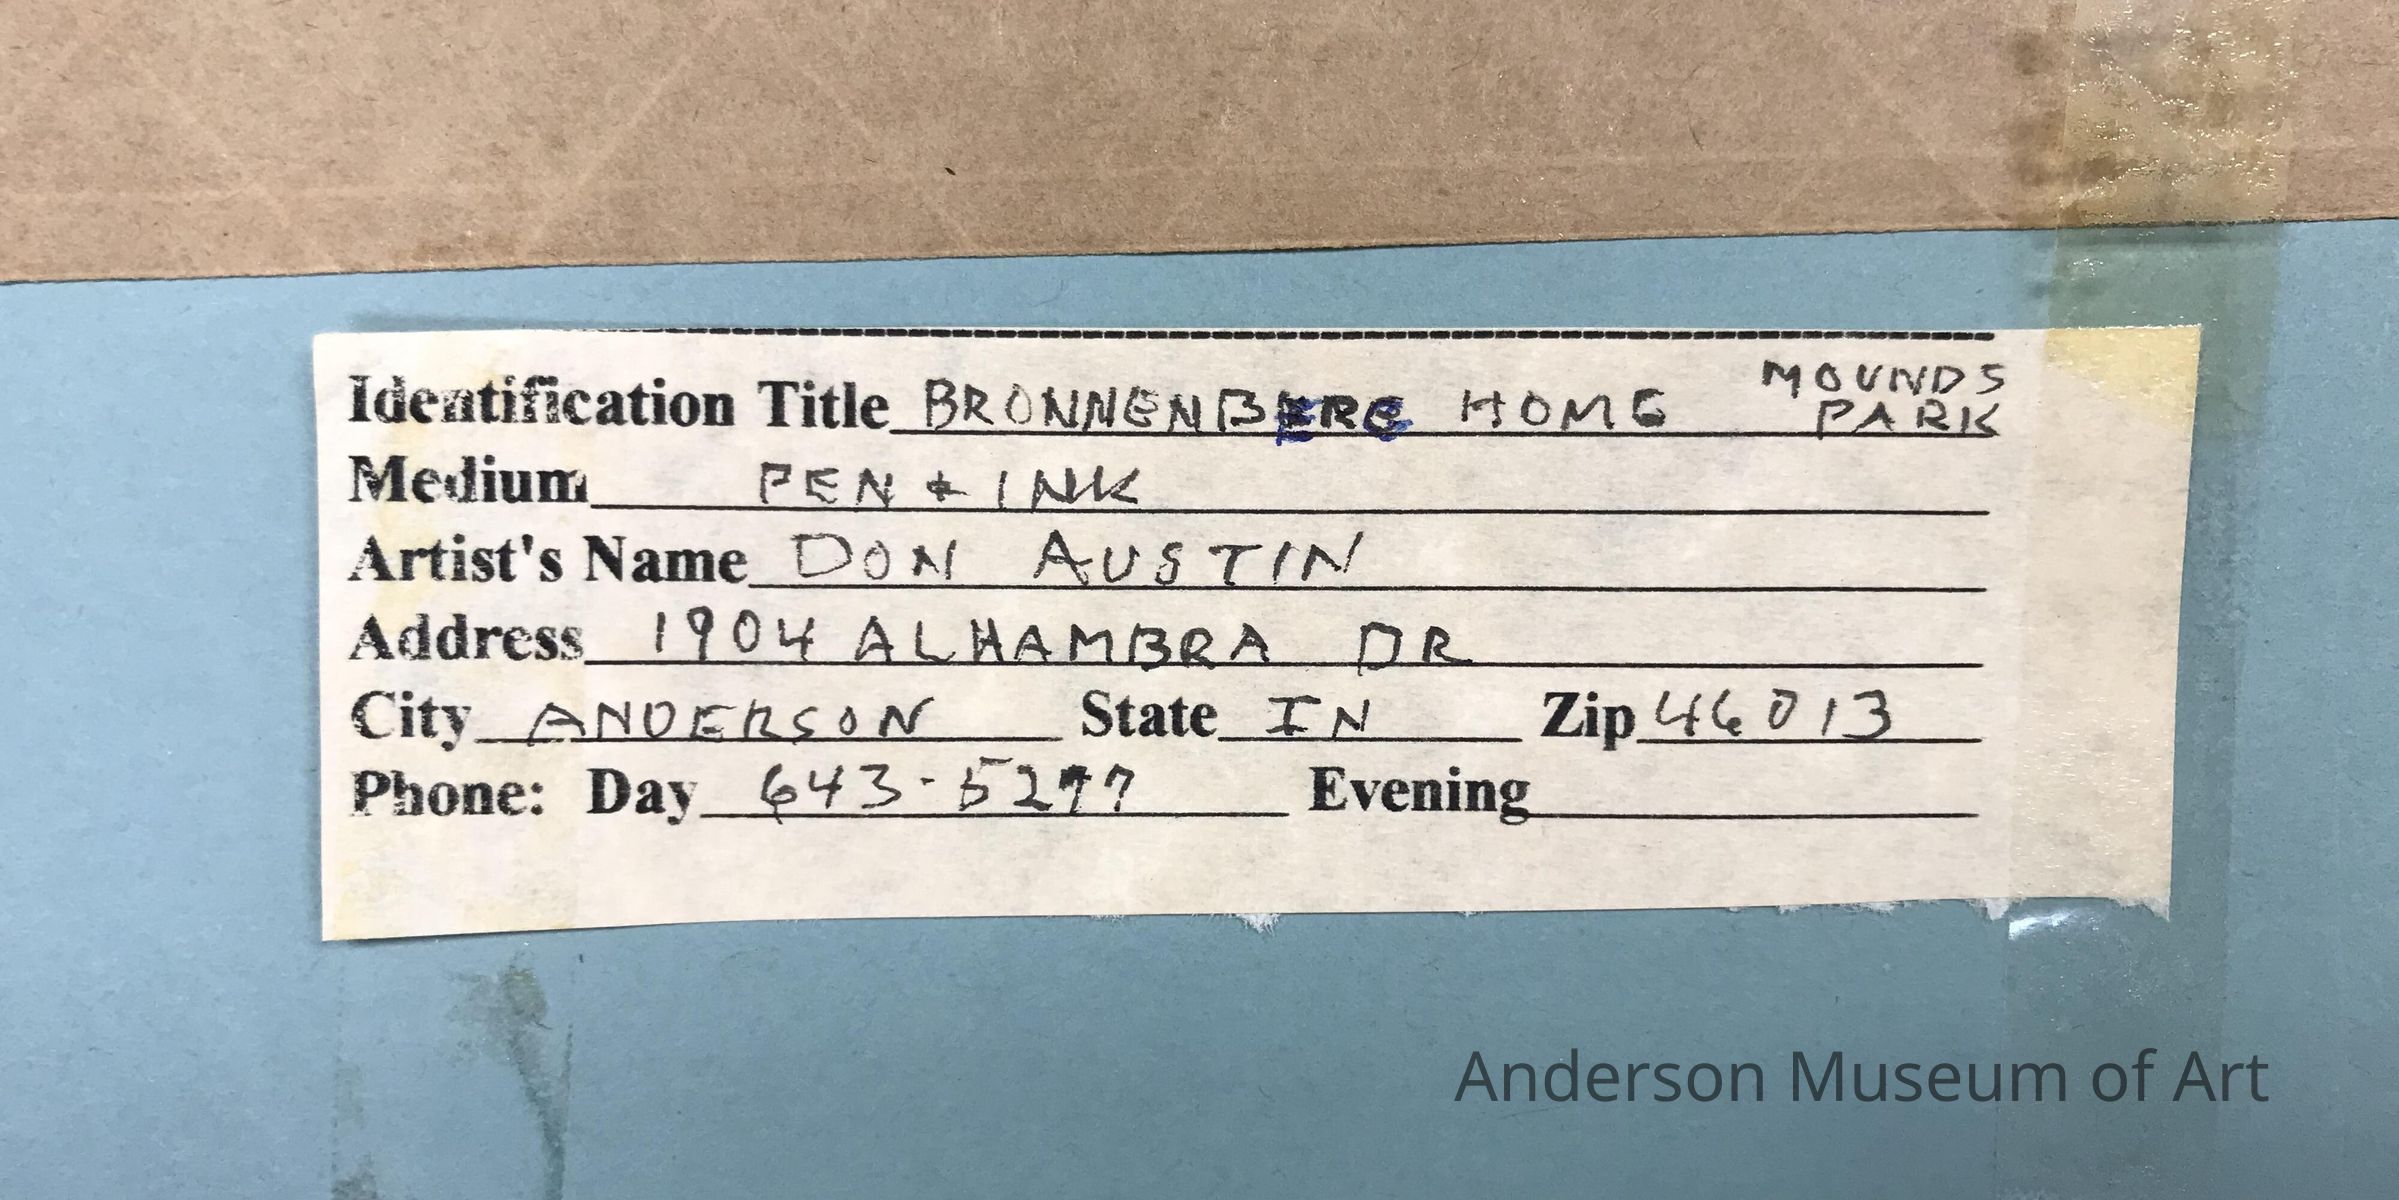 Identification Title BRONNENBERG HOME MOUNDS PARK
Medium PEN + INK
Artist's Name DON AUSTIN
Address 1904 ALHAMBRA DR
City ANDERSON State IN Zip 46013
Phone: Day 643-5277 Evening
Anderson Museum of Art